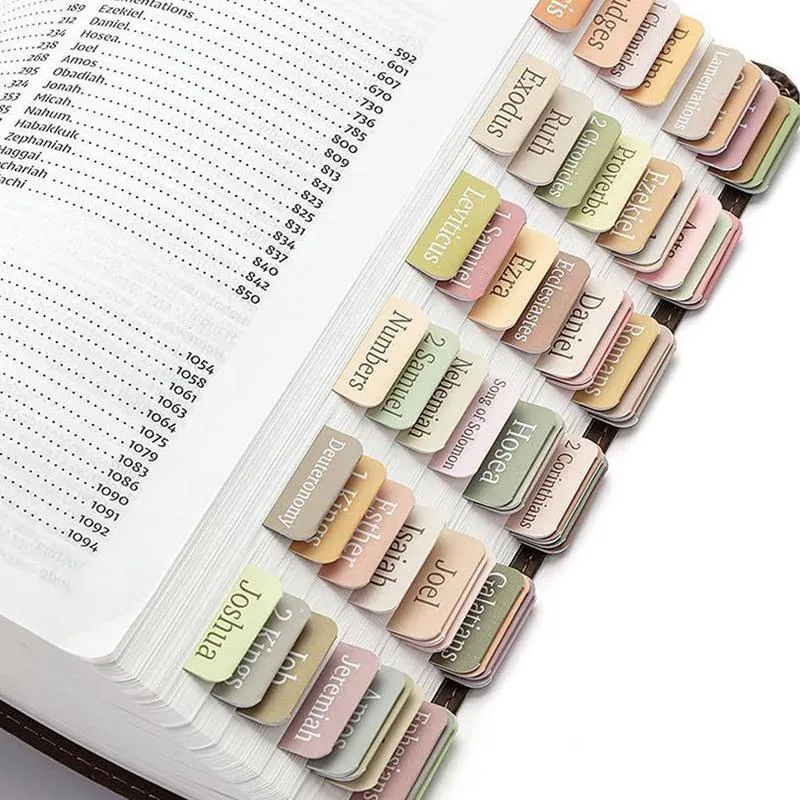 amentations.
189 Ezekiel.
212 Daniel. 592
234 Hosea. 601
238 Joel. 667
268 Amos. 670
295 Obadiah. 730
324 Jonah. 736
353 Micah. 785
Nahum. 800
Habakkuk 809
Zephaniah. 813
Haggai. 821
chariah 823
achi 825
831
834
837
840
842
850
1054
1058
1061
1063
1064
1075
1079
1083
1086
1090
1091
1092
1094
Judges
1 Chronicles
Psalms
Lamentations
Exodus
Ruth
2 Chronicles
Proverbs
Ezekiel
Acts
Leviticus
1 Samuel
Ezra
Ecclesiastes
Daniel
Romans
Numbers
2 Samuel
Nehemiah
Song of Solomon
Hosea
2 Corinthians
Deuteronomy
1 Kings
Esther
Isaiah
Joel
Galatians
Joshua
2 Kings
Job
Jeremiah
Amos
Ephesians